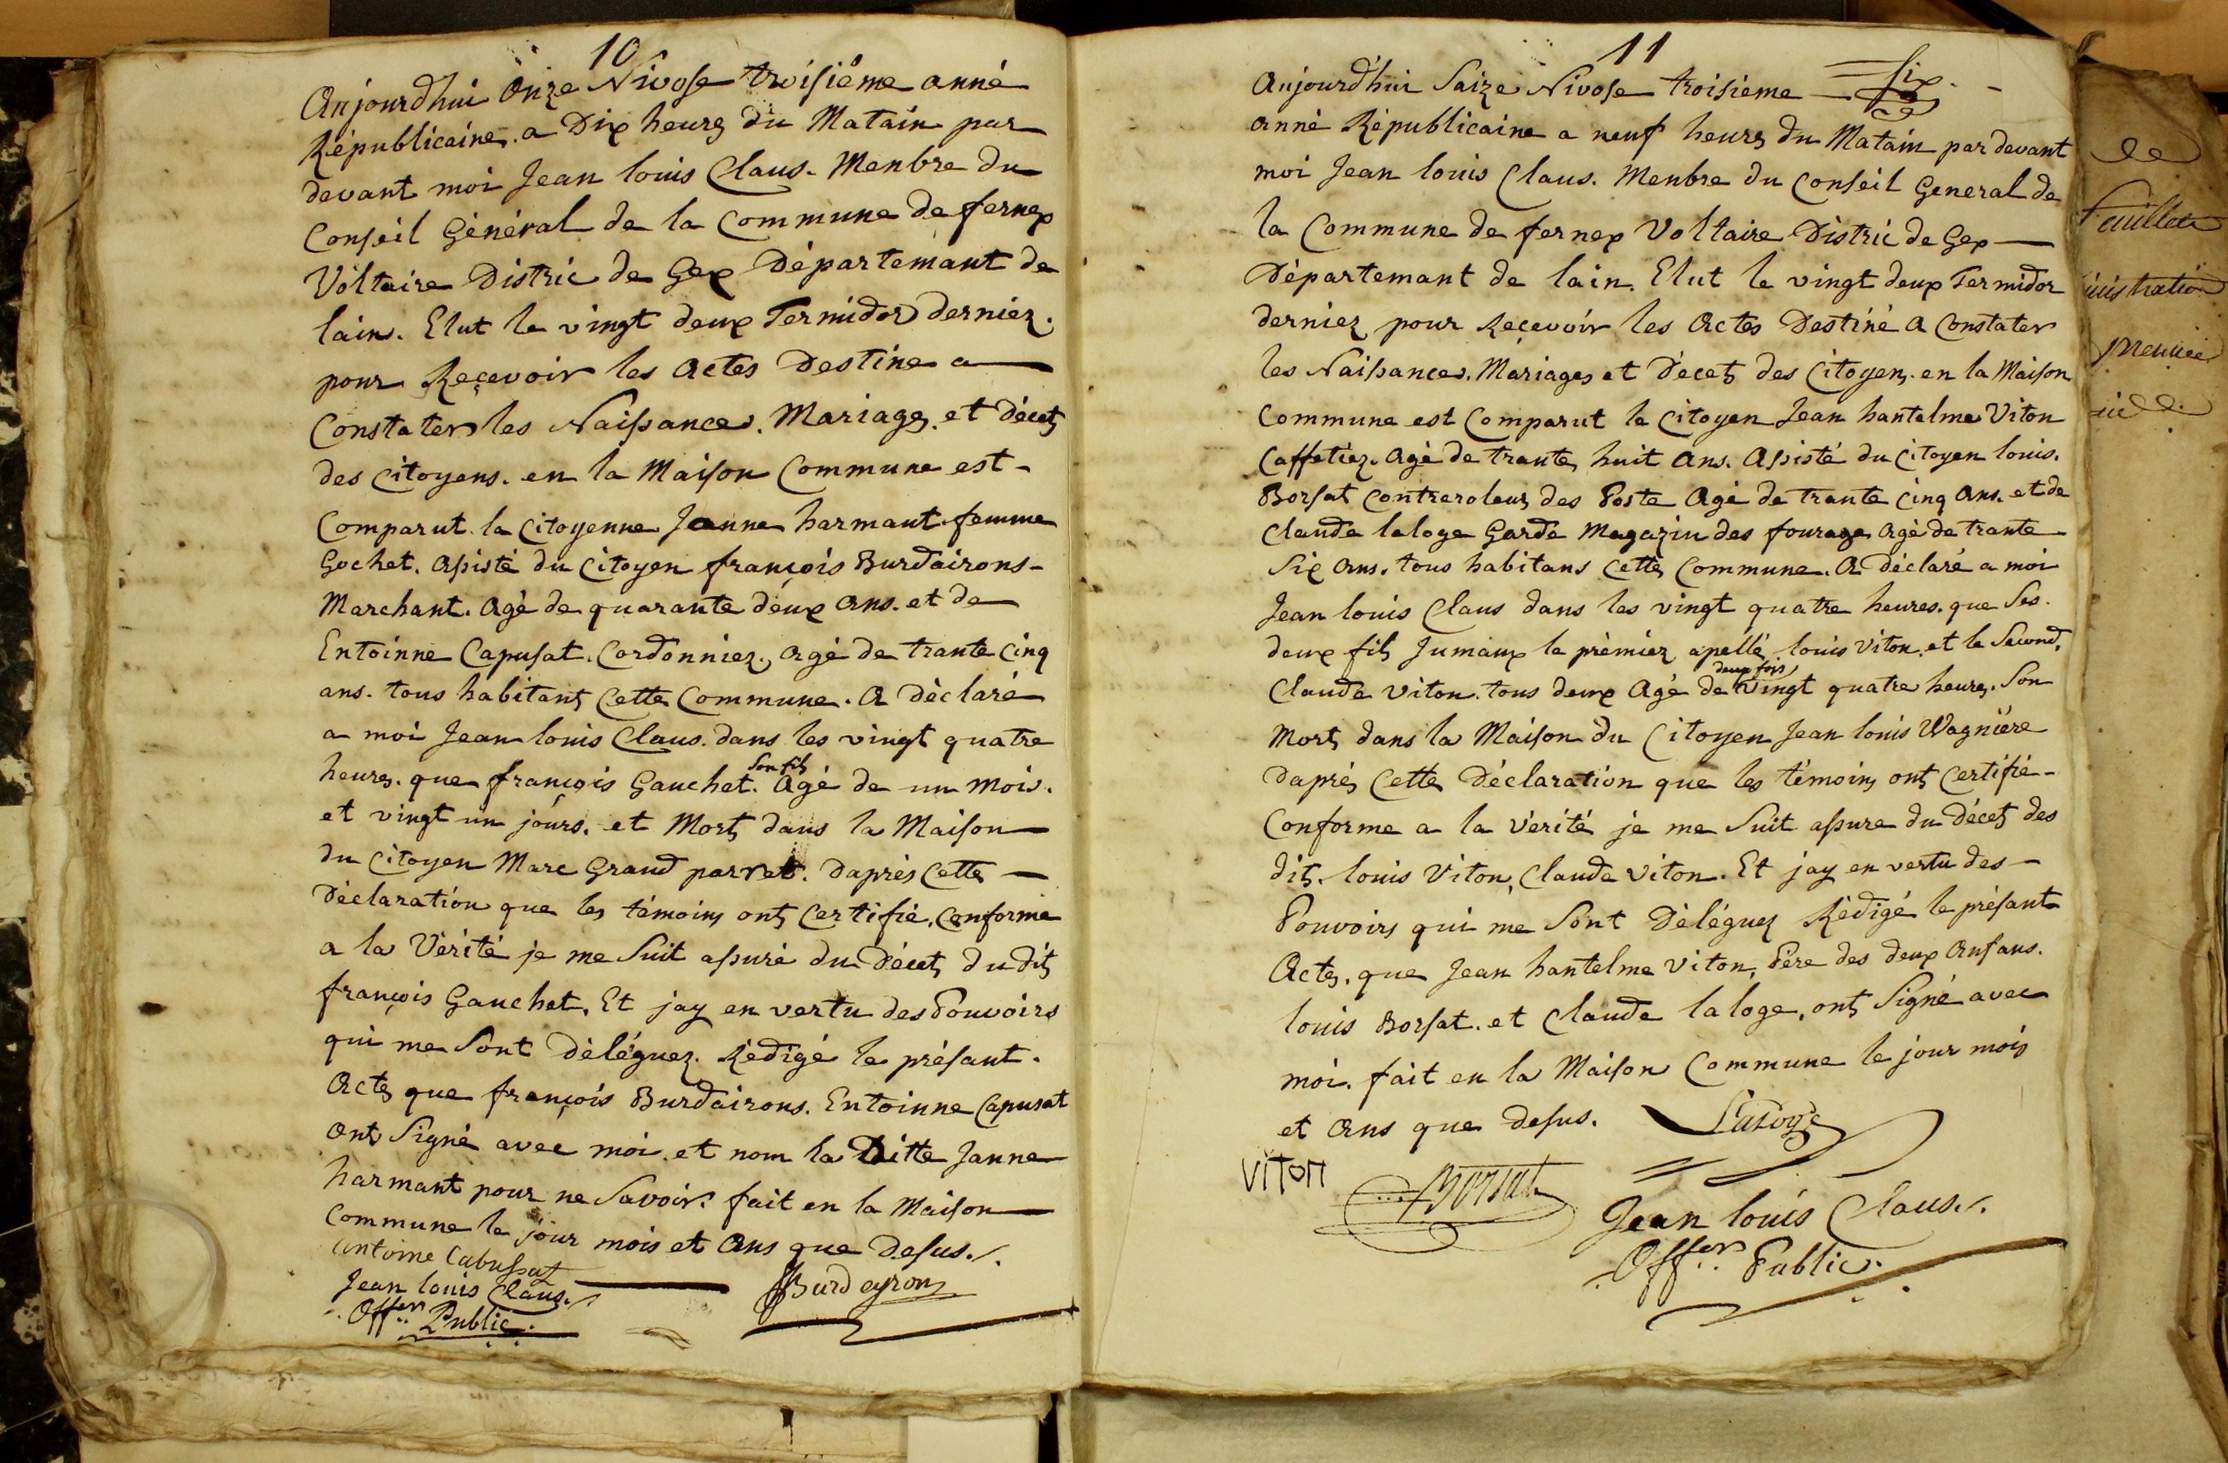 10
Aujourdhui Onze Nivose troisiéme anné
Républicaine. a Dix heures du Matain par
devant moi Jean louis Claus. Menbre du
Conseil Général de la Commune de fernex
Voltaire Distric de Gex Département de
lain. Elut le vingt deux Termidor dernier.
pour Reçevoir les Actes Destine a
Constater les Naissances. Mariages. et Décets
des Citoyens. en la Maison Commune est
Comparut la Citoyenne Janne harmant femme
Gochet. Assisté du Citoyen françois Burdairons
Marchant. Agé de quarante deux ans. et de
Entoinne Capusat. Cordonniez, agé de trante Cinq
ans. tous habitants Cette Commune. A Déclaré
a moi Jean louis Claus. dans les vingt quatre
son fils
heures. que françois Gauchet. Agé de un Mois.
et vingt un jours. et Morts dans la Maison
du Citoyen Marc Grand perret. Daprès Cette
Déclaration que les témoins onts Certifié. Conforme
a la Vérité je me Suit assuré du Décets du dits
françois Gauchet. Et jay en vertu des Pouvoirs
qui me Sont Déléguez. Rédigé le présant.
Actes que françois Burdairons. Entoinne Capusat
onts Signé avec moi. et nom la Ditte Janne
harmant pour ne Savoir. fait en la Maison
Commune le jour mois et Ans que Desus./.
antoine Cabussat
Jean louis Claus.
Burdeyron
Offer. Public.
11
Aujourd'hui Saize Nivose troisieme
Six
anné Républicaine a neuf heures du Matain par devant
moi Jean louis Claus. Menbre du Conseil General de
la Commune de fernex Voltaire Distric de Gex
Départemant de lain. Elut le vingt deux Termidor
dernier pour Reçevoir les Actes Destiné a Constater
les Naissances. Mariages et Décets des Citoyens. en la Maison
Commune est Comparut le Citoyen Jean hantelme Viton
Caffetiez. Agé de trante huit Ans. Assisté du Citoyen louis.
Borsat Contreroleur des Poste Agé de trante Cinq Ans. et de
Claude laloge Garde Magazin des fourage Agé de trante
Six Ans. tous habitans Cette Commune. A déclaré a moi
Jean louis Claus dans les vingt quatre heures. que Ses
deux fils Jumaux le prémiez apellé louis Viton. et le Second.
deux fois
Claude Viton. tous deux Agé de vingt quatre heures. Son
Morts dans la Maison du Citoyen Jean louis Wagniére
daprés Cette Déclaration que les témoins onts Certifié
Conforme a la Vérité je me Suit assure du Décets des
dits. louis Viton, Claude Viton. Et jay en vertu des
Pouvoirs qui me Sont Déléguez Rédigé le présant
Actes. que Jean hantelme Viton, Pére des deux Anfans.
louis Borsat. et Claude laloge, onts Signé avec
moi. fait en la Maison Commune le jour mois
et Ans que desus.
Laloge
Viton
Borsat
Jean louis Claus./.
Offer. Public.
de
feuillets